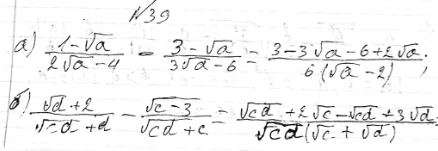 N39
а) (1-√a)/(2√a-4) - (3-√a)/(3√a-6) = (3-3√a-6+2√a)/(6(√a-2));
б) (√d+2)/(√cd+d) - (√c-3)/(√cd+c) = (√cd+2√c-√cd+3√d)/(√cd(√c+√d))